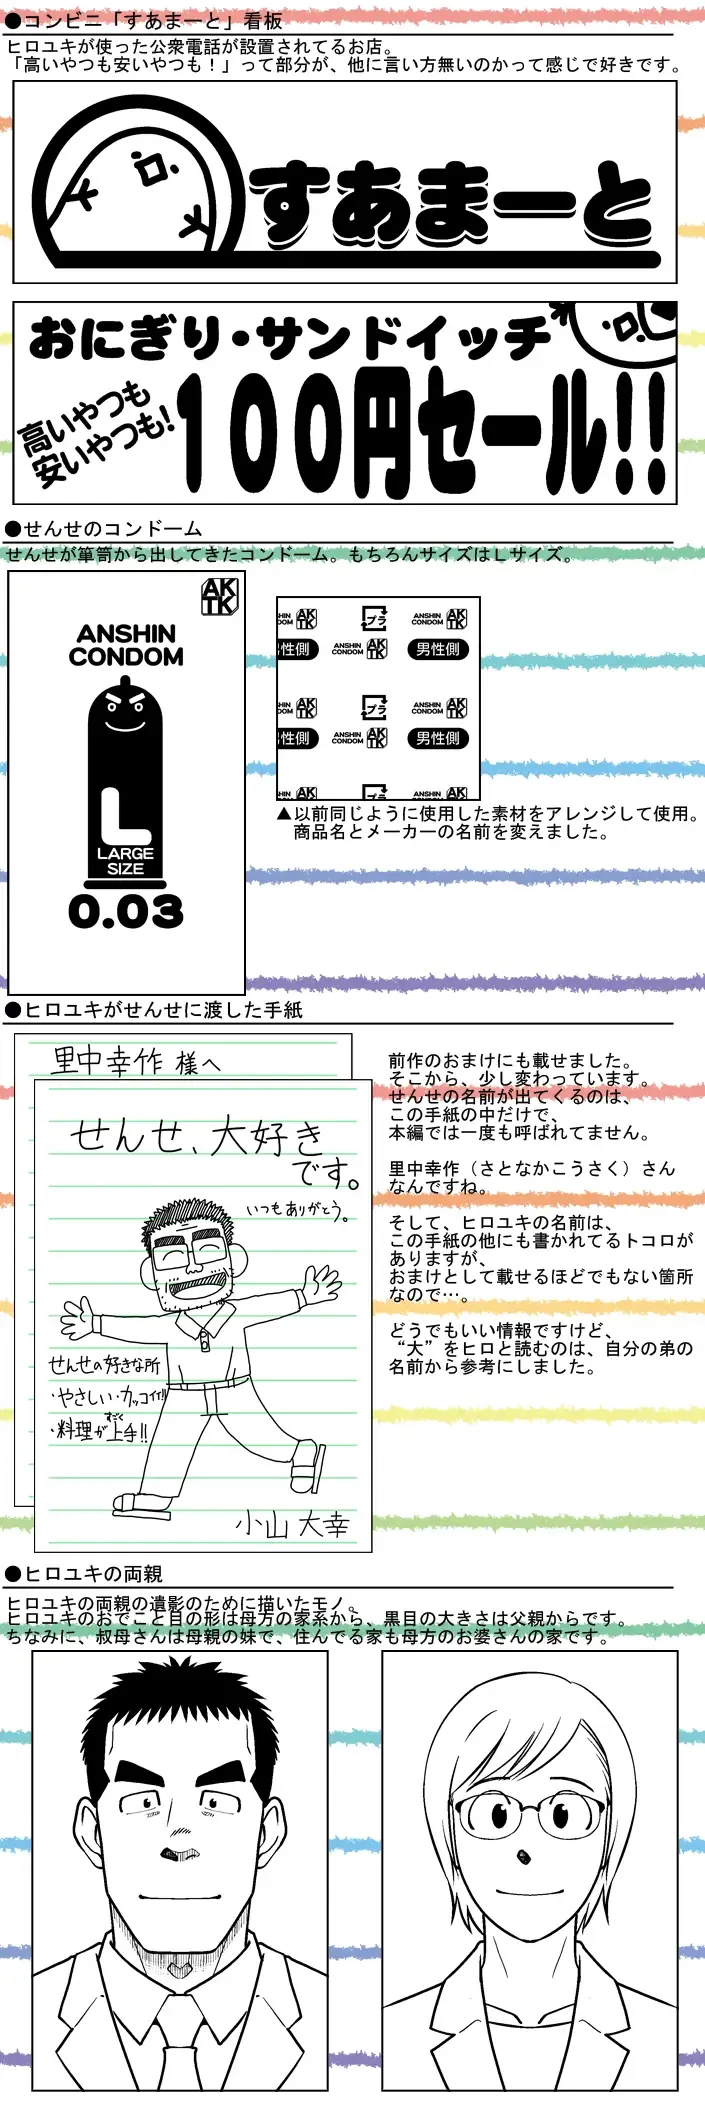 ●コンビニ「すあまーと」看板
ヒロユキが使った公衆電話が設置されてるお店。
「高いやつも安いやつも！」って部分が、他に言い方無いのかって感じで好きです。
すあまーと
おにぎり・サンドイッチ
高いやつも
安いやつも!
100円セール!!
●せんせのコンドーム
せんせが箪笥から出してきたコンドーム。もちろんサイズはLサイズ。
AK
TK
ANSHIN
CONDOM
L
LARGE
SIZE
0.03
HIN
DOM
AK
TK
プラ
ANSHIN
CONDOM
AK
TK
男性側
ANSHIN
CONDOM
AK
TK
男性側
HIN
DOM
AK
TK
プラ
ANSHIN
CONDOM
AK
TK
男性側
ANSHIN
CONDOM
AK
TK
男性側
HIN
DOM
AK
プラ
ANSHIN
CONDOM
AK
▲以前同じように使用した素材をアレンジして使用。
商品名とメーカーの名前を変えました。
●ヒロユキがせんせに渡した手紙
里中幸作 様へ
せんせ、大好き
です。
いつもありがとう。
せんせの好きな所
・やさしい・カッコイイ!!
すごく
・料理が上手!!
小山 大幸
前作のおまけにも載せました。
そこから、少し変わっています。
せんせの名前が出てくるのは、
この手紙の中だけで、
本編では一度も呼ばれてません。
里中幸作（さとなかこうさく）さん
なんですね。
そして、ヒロユキの名前は、
この手紙の他にも書かれてるトコロが
ありますが、
おまけとして載せるほどでもない箇所
なので…。
どうでもいい情報ですけど、
“大”をヒロと読むのは、自分の弟の
名前から参考にしました。
●ヒロユキの両親
ヒロユキの両親の遺影のために描いたモノ。
ヒロユキのおでこと目の形は母方の家系から、黒目の大きさは父親からです。
ちなみに、叔母さんは母親の妹で、住んでる家も母方のお婆さんの家です。